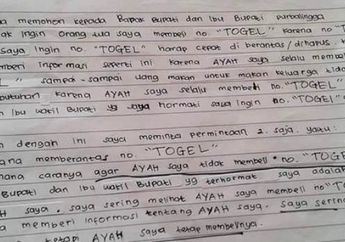 a memohon kepada Bapak Bupati dan Ibu Bupati purbalingga
ak ingin orang tua saya membeli no. "TOGEL" karena no "T
saya ingin no. "TOGEL" harap cepat di berantas/dihapus.
mberi informasi seperti ini karena AYAH saya selalu membe
L" sampai-sampai uang makan untuk makan keluarga tida
butuhan karena AYAH saya selalu membeli no "TOGEL"
n Ibu wakil Bupati yg saya hormati saya ingin no. "TOGEL"
n dengan ini saya meminta permintaan 2. saja. yaitu:
ana memberantas no. "TOGEL"
mana caranya agar AYAH saya tidak membeli no. "TOGE
Bupati dan Ibu wakil Bupati yg terhormat saya adalah
H saya. saya sering melihat AYAH saya membeli no "TO
a memberi informasi tentang AYAH saya. saya sering
tetapi AYAH saya tetap membelinya.